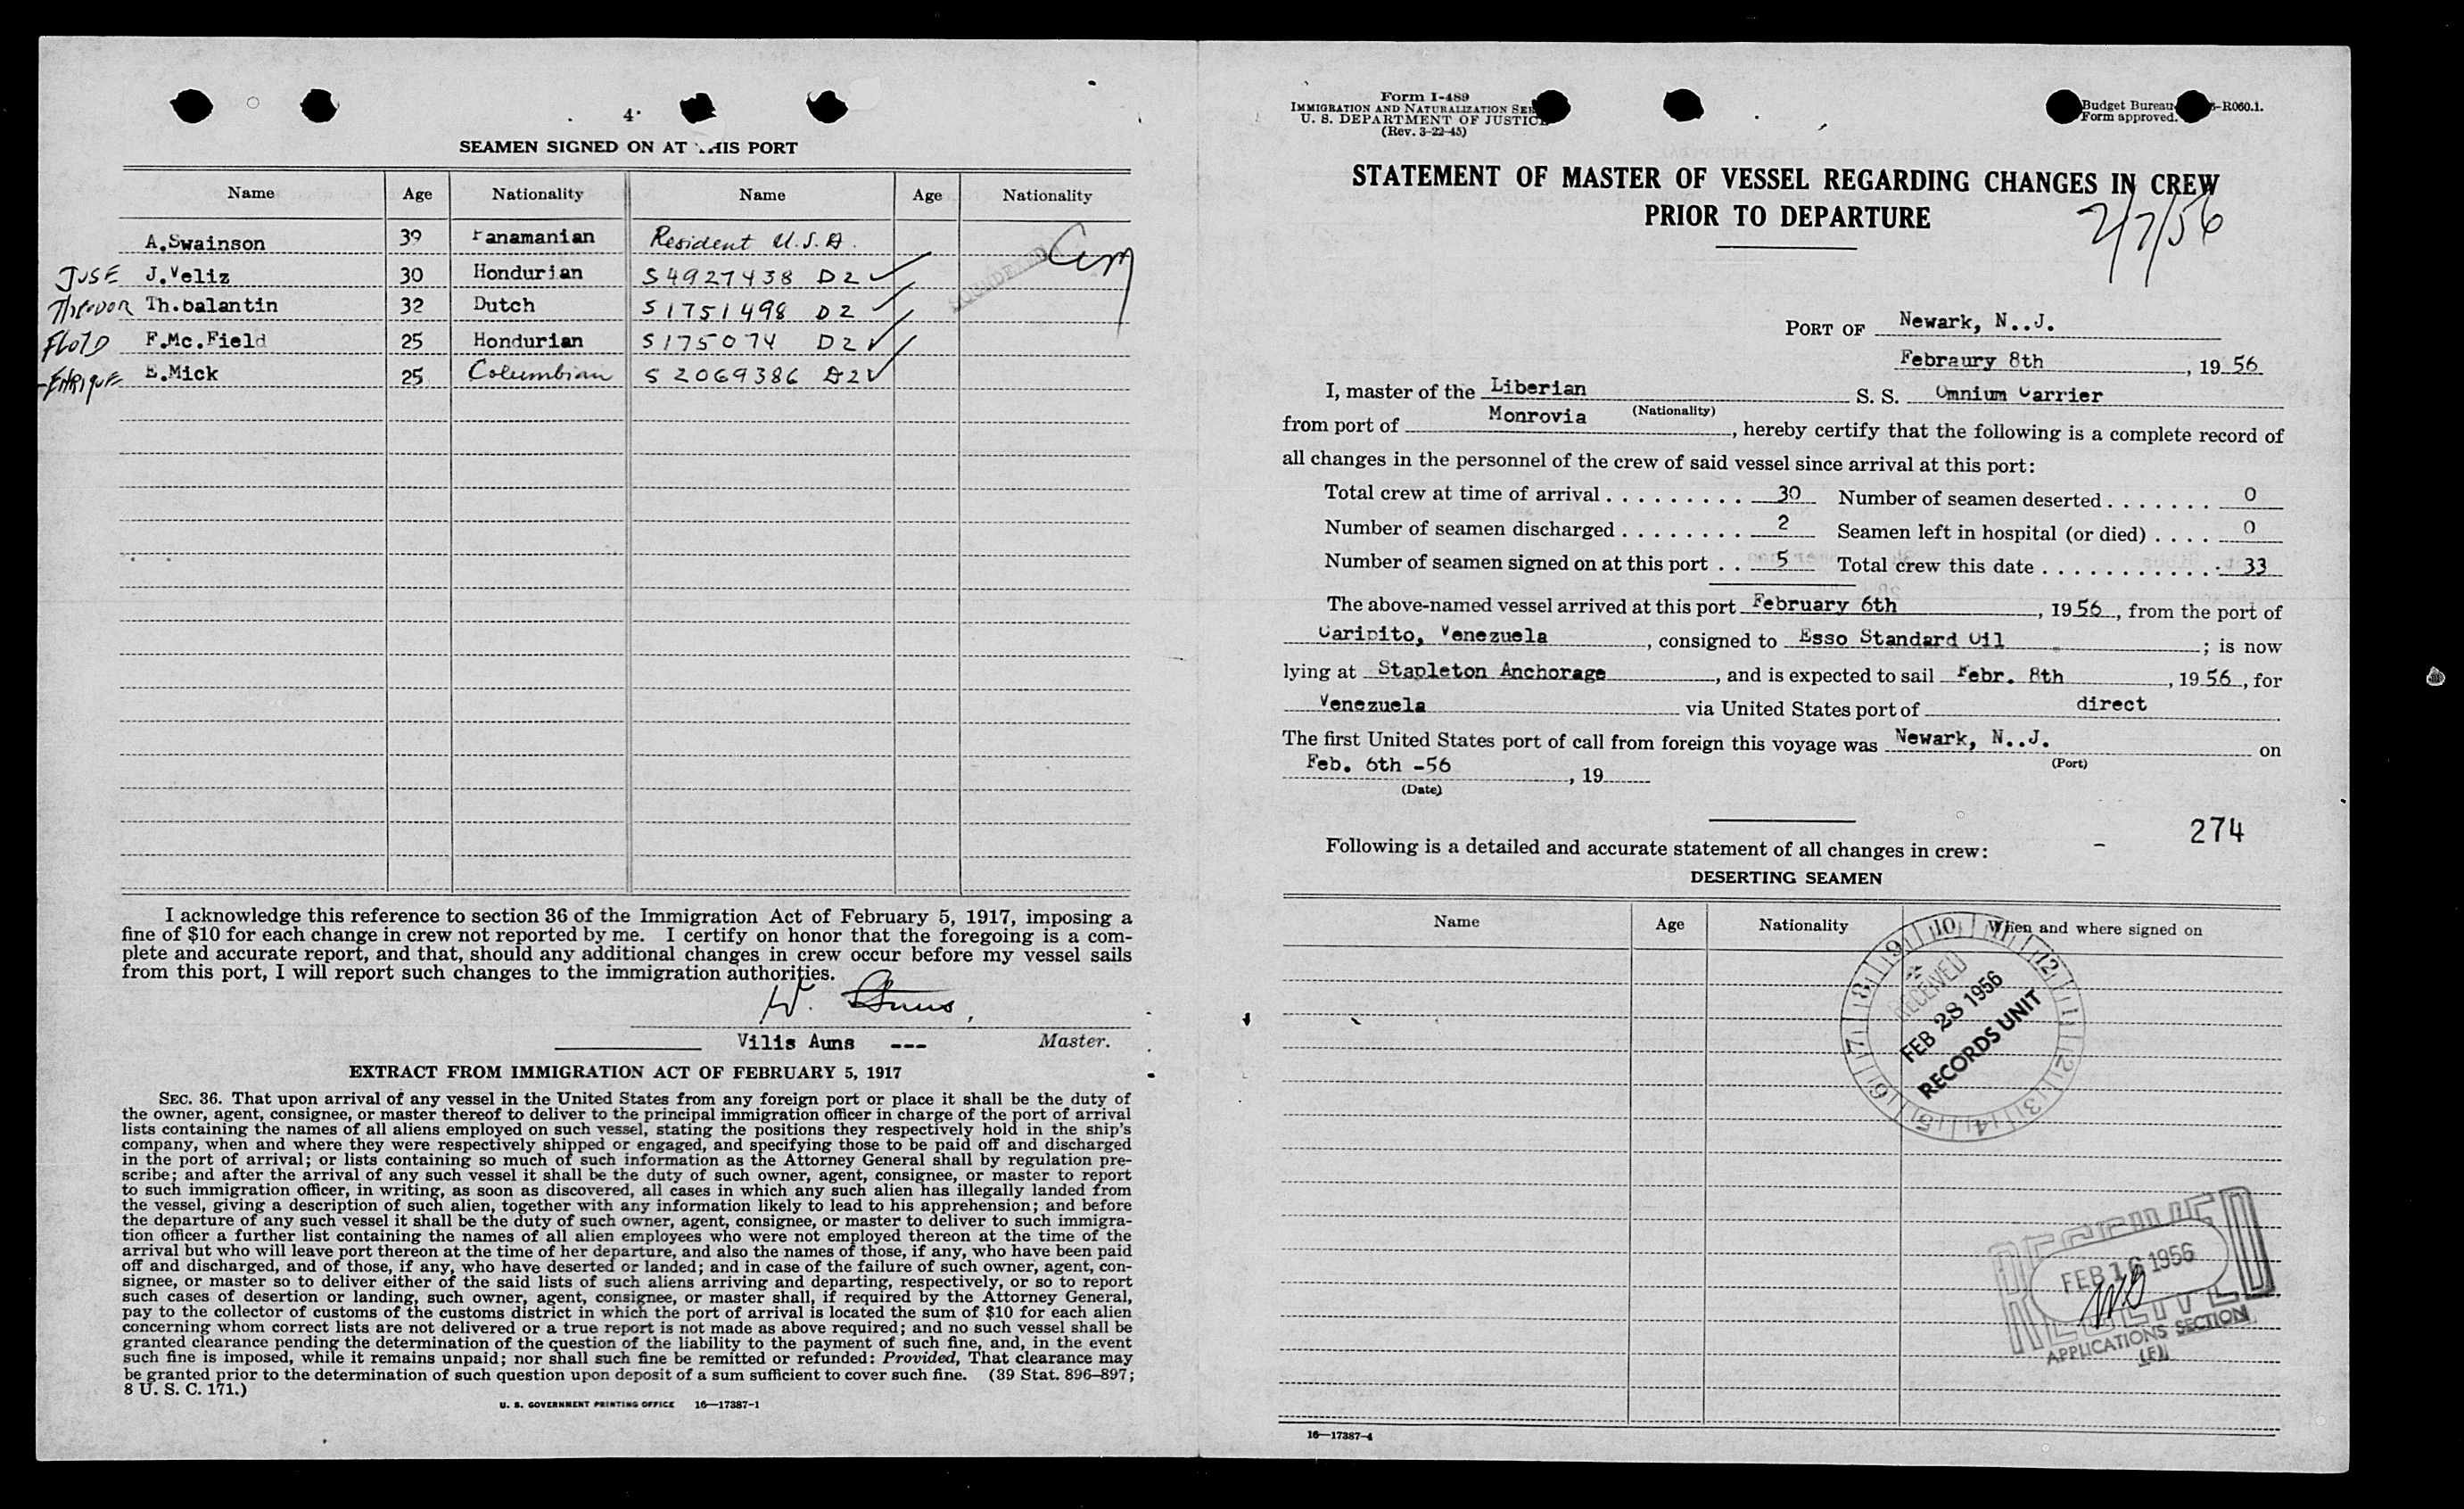 4
SEAMEN SIGNED ON AT THIS PORT
Name Age Nationality Name Age Nationality
A.Swainson 39 Panamanian Resident U.S.A.
JOSE J.Veliz 30 Hondurian S4927438 D2 ✓
THEODOR Th.balantin 32 Dutch S1751498 D2 ✓
FLOYD F.Mc.Field 25 Hondurian S175074 D2 ✓
ENRIQUE E.Mick 25 Columbian S2069386 D2 ✓
I acknowledge this reference to section 36 of the Immigration Act of February 5, 1917, imposing a
fine of $10 for each change in crew not reported by me. I certify on honor that the foregoing is a com-
plete and accurate report, and that, should any additional changes in crew occur before my vessel sails
from this port, I will report such changes to the immigration authorities.
V. Auns,
Vilis Auns --- Master.
EXTRACT FROM IMMIGRATION ACT OF FEBRUARY 5, 1917
SEC. 36. That upon arrival of any vessel in the United States from any foreign port or place it shall be the duty of
the owner, agent, consignee, or master thereof to deliver to the principal immigration officer in charge of the port of arrival
lists containing the names of all aliens employed on such vessel, stating the positions they respectively hold in the ship's
company, when and where they were respectively shipped or engaged, and specifying those to be paid off and discharged
in the port of arrival; or lists containing so much of such information as the Attorney General shall by regulation pre-
scribe; and after the arrival of any such vessel it shall be the duty of such owner, agent, consignee, or master to report
to such immigration officer, in writing, as soon as discovered, all cases in which any such alien has illegally landed from
the vessel, giving a description of such alien, together with any information likely to lead to his apprehension; and before
the departure of any such vessel it shall be the duty of such owner, agent, consignee, or master to deliver to such immigra-
tion officer a further list containing the names of all alien employees who were not employed thereon at the time of the
arrival but who will leave port thereon at the time of her departure, and also the names of those, if any, who have been paid
off and discharged, and of those, if any, who have deserted or landed; and in case of the failure of such owner, agent, con-
signee, or master so to deliver either of the said lists of such aliens arriving and departing, respectively, or so to report
such cases of desertion or landing, such owner, agent, consignee, or master shall, if required by the Attorney General,
pay to the collector of customs of the customs district in which the port of arrival is located the sum of $10 for each alien
concerning whom correct lists are not delivered or a true report is not made as above required; and no such vessel shall be
granted clearance pending the determination of the question of the liability to the payment of such fine, and, in the event
such fine is imposed, while it remains unpaid; nor shall such fine be remitted or refunded: Provided, That clearance may
be granted prior to the determination of such question upon deposit of a sum sufficient to cover such fine. (39 Stat. 896–897;
8 U. S. C. 171.)
U. S. GOVERNMENT PRINTING OFFICE 16—17387-1
Form I-489
IMMIGRATION AND NATURALIZATION SER
U. S. DEPARTMENT OF JUSTICE
(Rev. 3-22-45)
Budget Bureau -R060.1.
Form approved.
STATEMENT OF MASTER OF VESSEL REGARDING CHANGES IN CREW
PRIOR TO DEPARTURE
2/7/56
PORT OF Newark, N..J.
Febraury 8th, 1956
I, master of the Liberian S. S. Omnium Carrier
(Nationality)
from port of Monrovia, hereby certify that the following is a complete record of
all changes in the personnel of the crew of said vessel since arrival at this port:
Total crew at time of arrival . . . . . . . . . 30 Number of seamen deserted . . . . . . . 0
Number of seamen discharged . . . . . . . . 2 Seamen left in hospital (or died) . . . . 0
Number of seamen signed on at this port . . 5 Total crew this date . . . . . . . . . . . . 33
The above-named vessel arrived at this port February 6th, 1956, from the port of
Caripito, Venezuela, consigned to Esso Standard Oil; is now
lying at Stapleton Anchorage, and is expected to sail Febr. 8th, 1956, for
Venezuela via United States port of direct
The first United States port of call from foreign this voyage was Newark, N..J. on
(Port)
Feb. 6th -56, 19
(Date)
274
Following is a detailed and accurate statement of all changes in crew:
DESERTING SEAMEN
Name Age Nationality When and where signed on
8 9 10 11 12 1 2 3 4 5 6 7
RECEIVED
FEB 28 1956
RECORDS UNIT
RECEIVED
FEB 16 1956
APPLICATIONS SECTION
16—17387-4